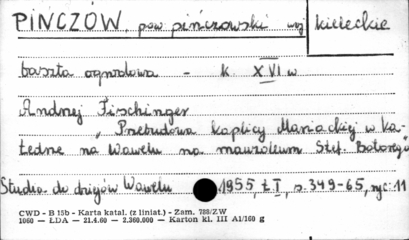 PIŃCZÓW, pow pińczowski woj kieleckie
baszta ogrodowa - k XVI w
Andrzej Fischinger
„ Przebudowa kaplicy Mariackiej w ka-
tedrze na Wawelu na mauzoleum Stef. Batorego
Studia do dziejów Wawelu 1955, t.I, s. 349-65, ryc. 11
CWD - B 15b - Karta katal. (z liniat.) - Zam. 788/ZW
1060 — ŁDA — 21.4.60 - 2.360.000 — Karton kl. III A1/160 g